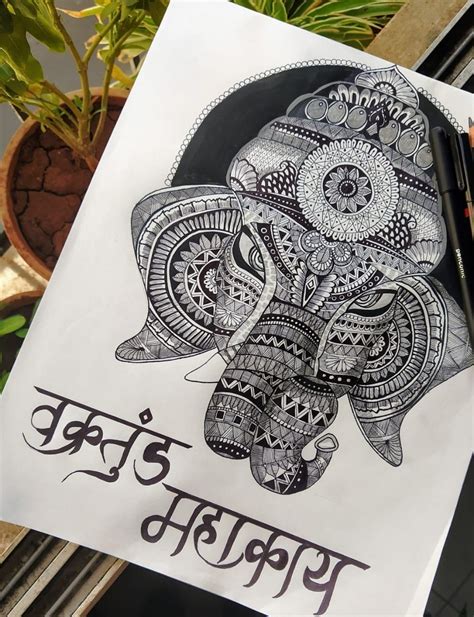 वक्रतुंड
महाकाय